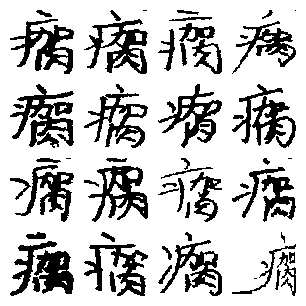 瘸瘸瘸瘸
瘸瘸瘸瘸
瘸瘸瘸瘸
瘸瘸瘸瘸